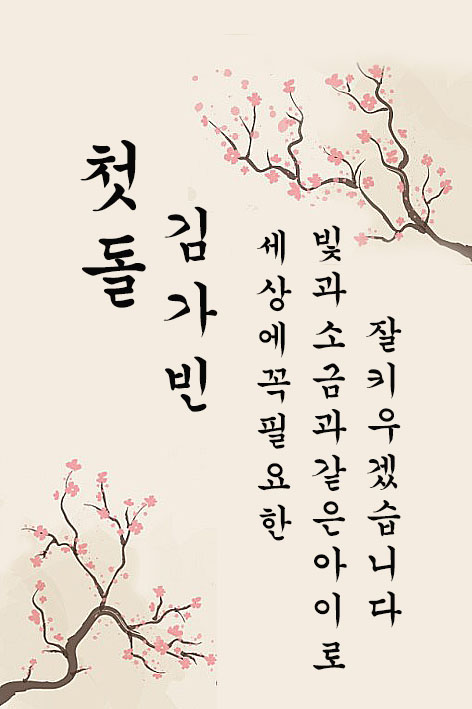 첫돌
김가빈
세상에꼭필요한
빛과소금과같은아이로
잘키우겠습니다